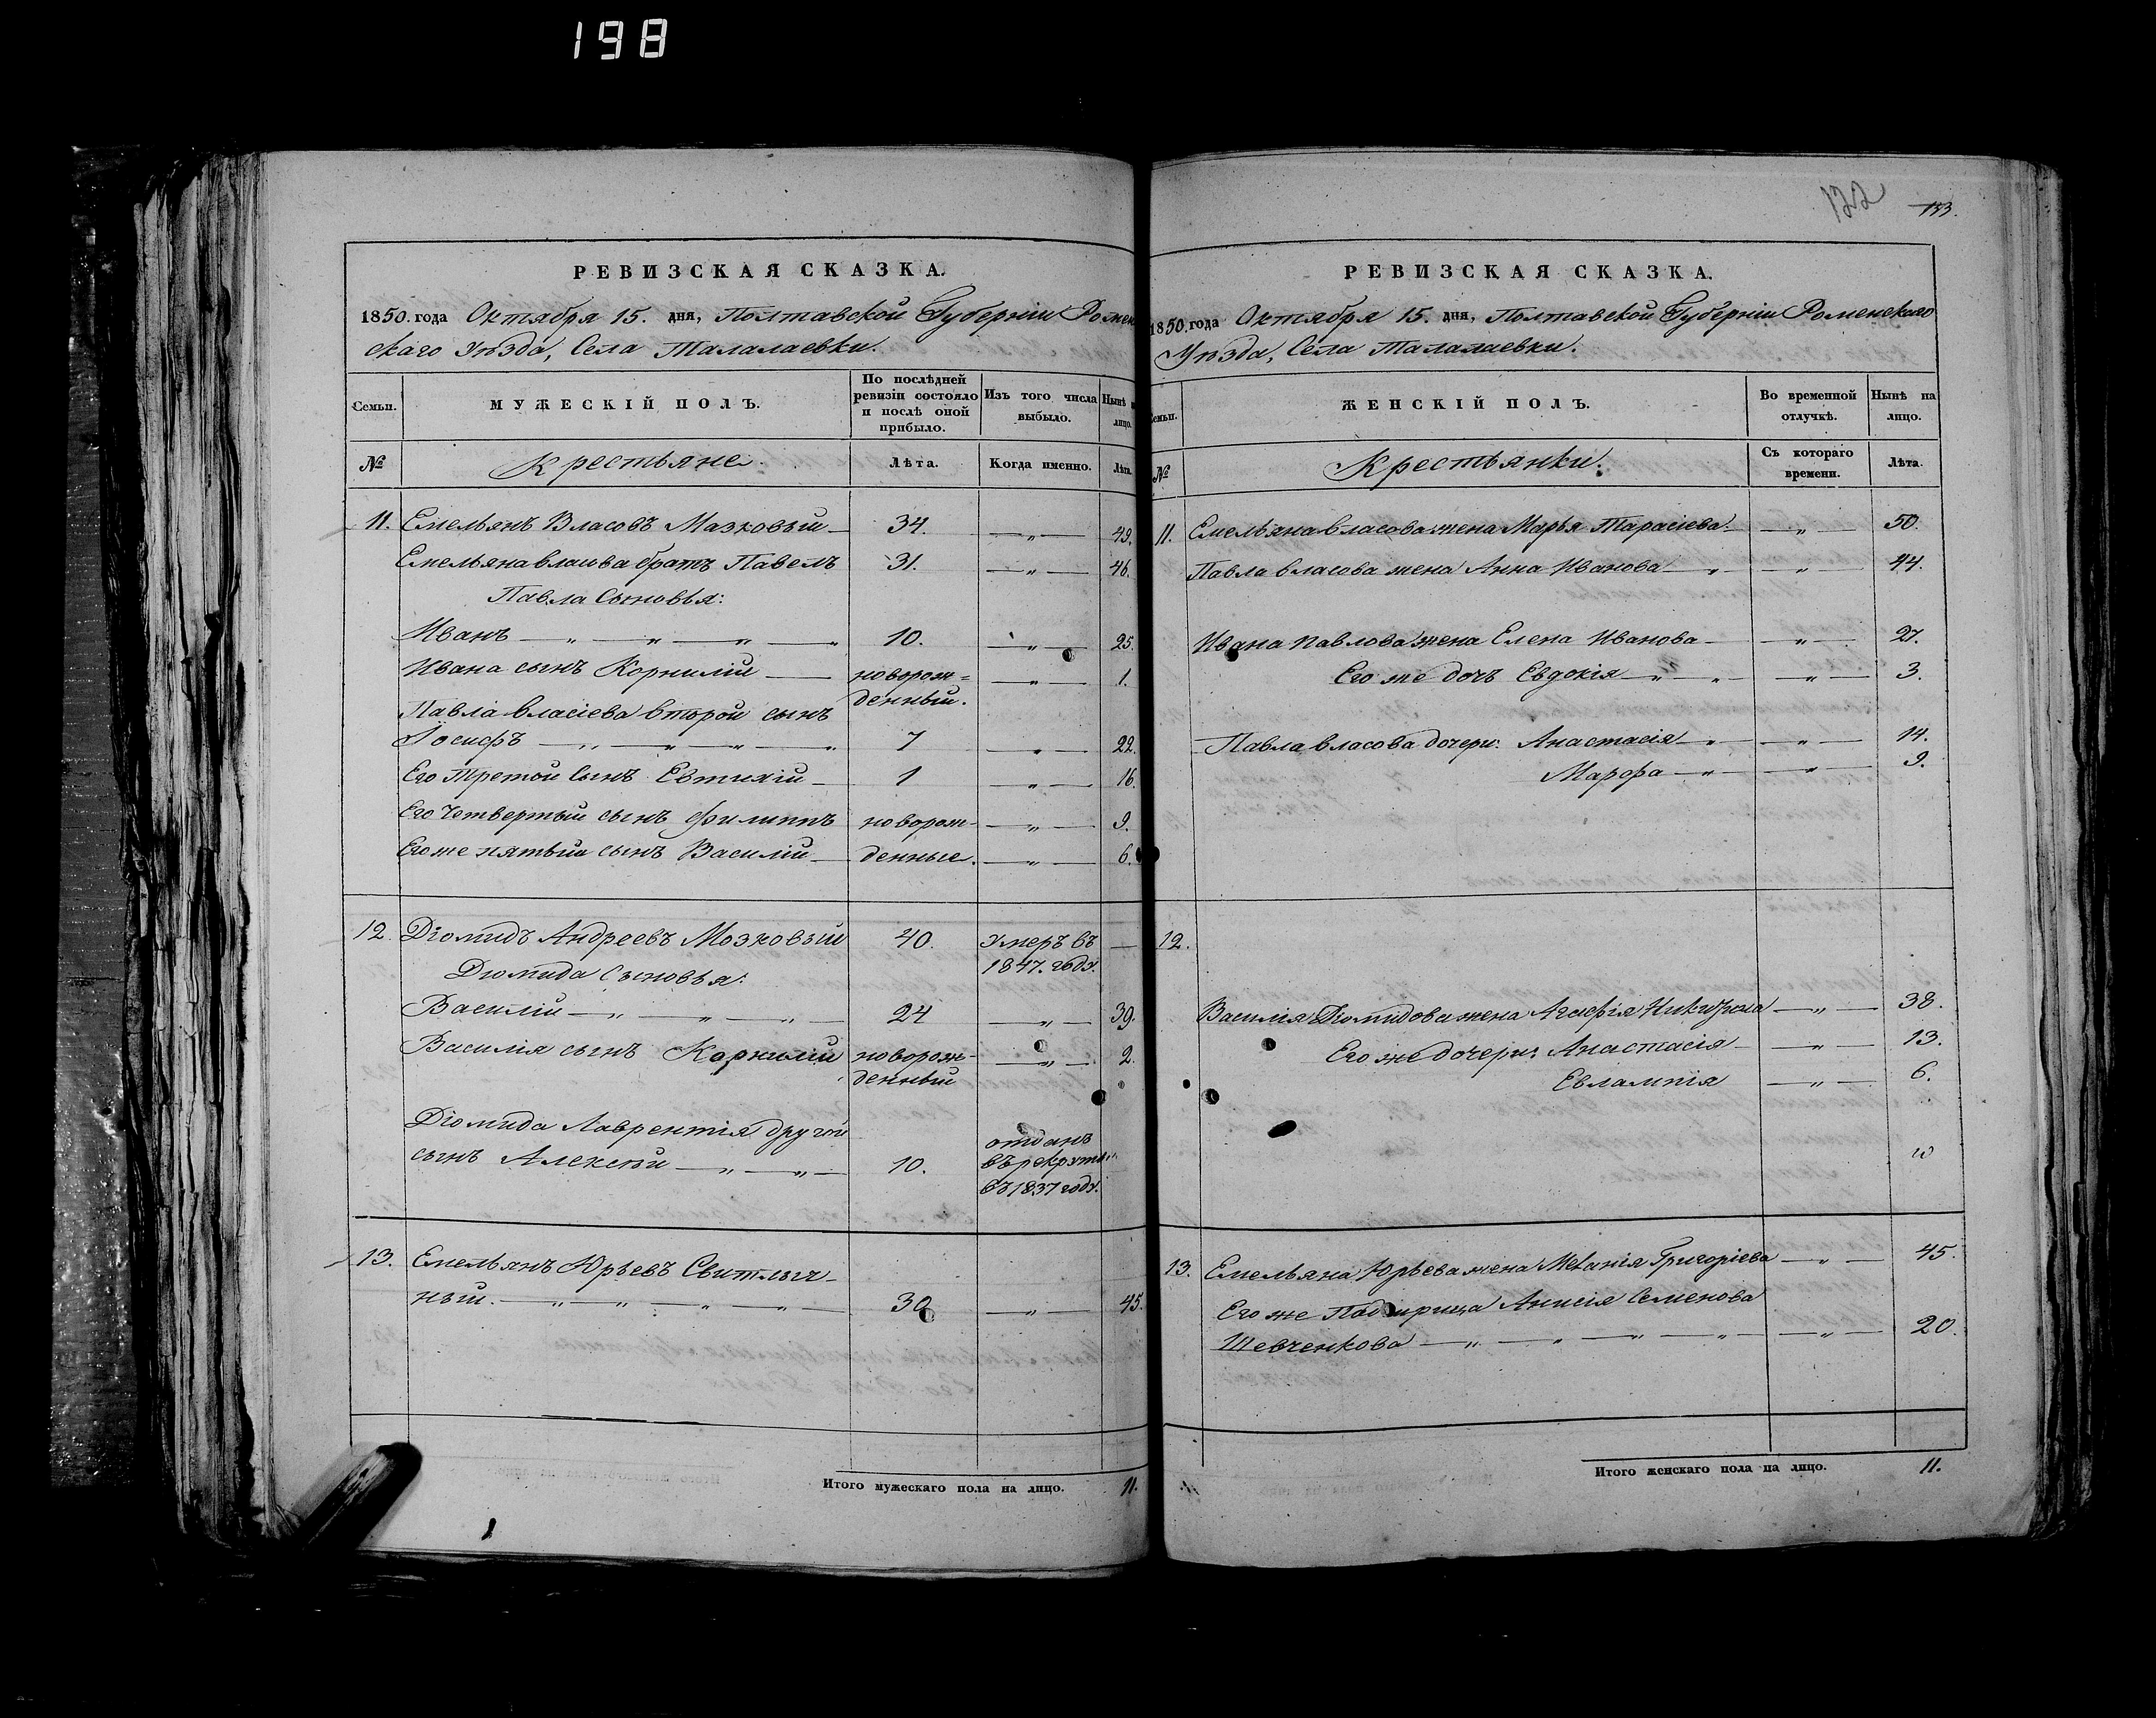 198
РЕВИЗСКАЯ СКАЗКА.
1850. года Октября 15. дня, Полтавской Губерніи Ромен
скаго Уѣзда, Села Талалаевки.
Семьи.
МУЖЕСКІЙ ПОЛЪ.
По послѣдней
ревизіи состояло
и послѣ оной
прибыло.
Изъ того числа
выбыло.
Нынѣ
лицо.
№
Крестьяне.
Лѣта.
Когда именно.
Лѣта.
11. Емельянъ Власовъ Мазковый 34. — „ — 49.
Емельяна власова братъ Павелъ 31. — „ — 46.
Павла Сыновья:
Иванъ — „ — „ — „ — „ 10. — „ — 25.
Ивана сынъ Корнилій — новорож= — „ — 1.
денный.
Павла власіева второй сынъ
Іосифъ — „ — „ — „ — „ 7 — „ — 22.
Его Третой Сынъ Евтихій 1 — „ — 16.
Его Четвертый сынъ Филиппъ новорож- — „ — 9.
Егоже пятый сынъ Василій денные. — „ — 6.
12. Діомидъ Андреевъ Мозковый 40. умеръ въ —
1847. году.
Діомида Сыновья:
Василій — „ — „ — „ — 24 — „ — 39.
Василія сынъ Корнилій новорож- — „ — 2.
денный
Діомида Лаврентія другой
сынъ Алексѣй — „ — „ — 10. отданъ
въ рекруты
въ 1837 году.
13. Емельянъ Юрьевъ Свитлыч-
ный. — „ — „ — „ — „ — 30 — „ — 45.
Итого мужескаго пола на лицо. 11.
122 133.
РЕВИЗСКАЯ СКАЗКА.
1850. года Октября 15. дня, Полтавской Губерніи Роменскаго
Уѣзда, Села Талалаевки.
Семьи.
ЖЕНСКІЙ ПОЛЪ.
Во временной
отлучкѣ.
Нынѣ на
лицо.
№
Крестьянки.
Съ котораго
времени.
Лѣта.
11. Емельяна власова жена Марья Тарасіева — „ — 50.
Павла власова жена Анна Иванова — „ — „ — 44.
Ивана павлова жена Елена Иванова — „ — 27.
Его же дочь Евдокія — „ — „ — „ — 3.
Павла власова дочери: Анастасія — „ — „ — 14.
Марфа — „ — „ — 9.
12.
Василія Діомидова жена Агафія Никитина — „ — 38.
Его же дочери: Анастасія — „ — 13.
Евлампія — „ — 6.
13. Емельяна Юрьева жена Меланія Григоріева — „ — 45.
Его же Падчирица Анисія Семенова
Шевченкова — „ — „ — „ — „ — „ — 20.
Итого женскаго пола на лицо. 11.